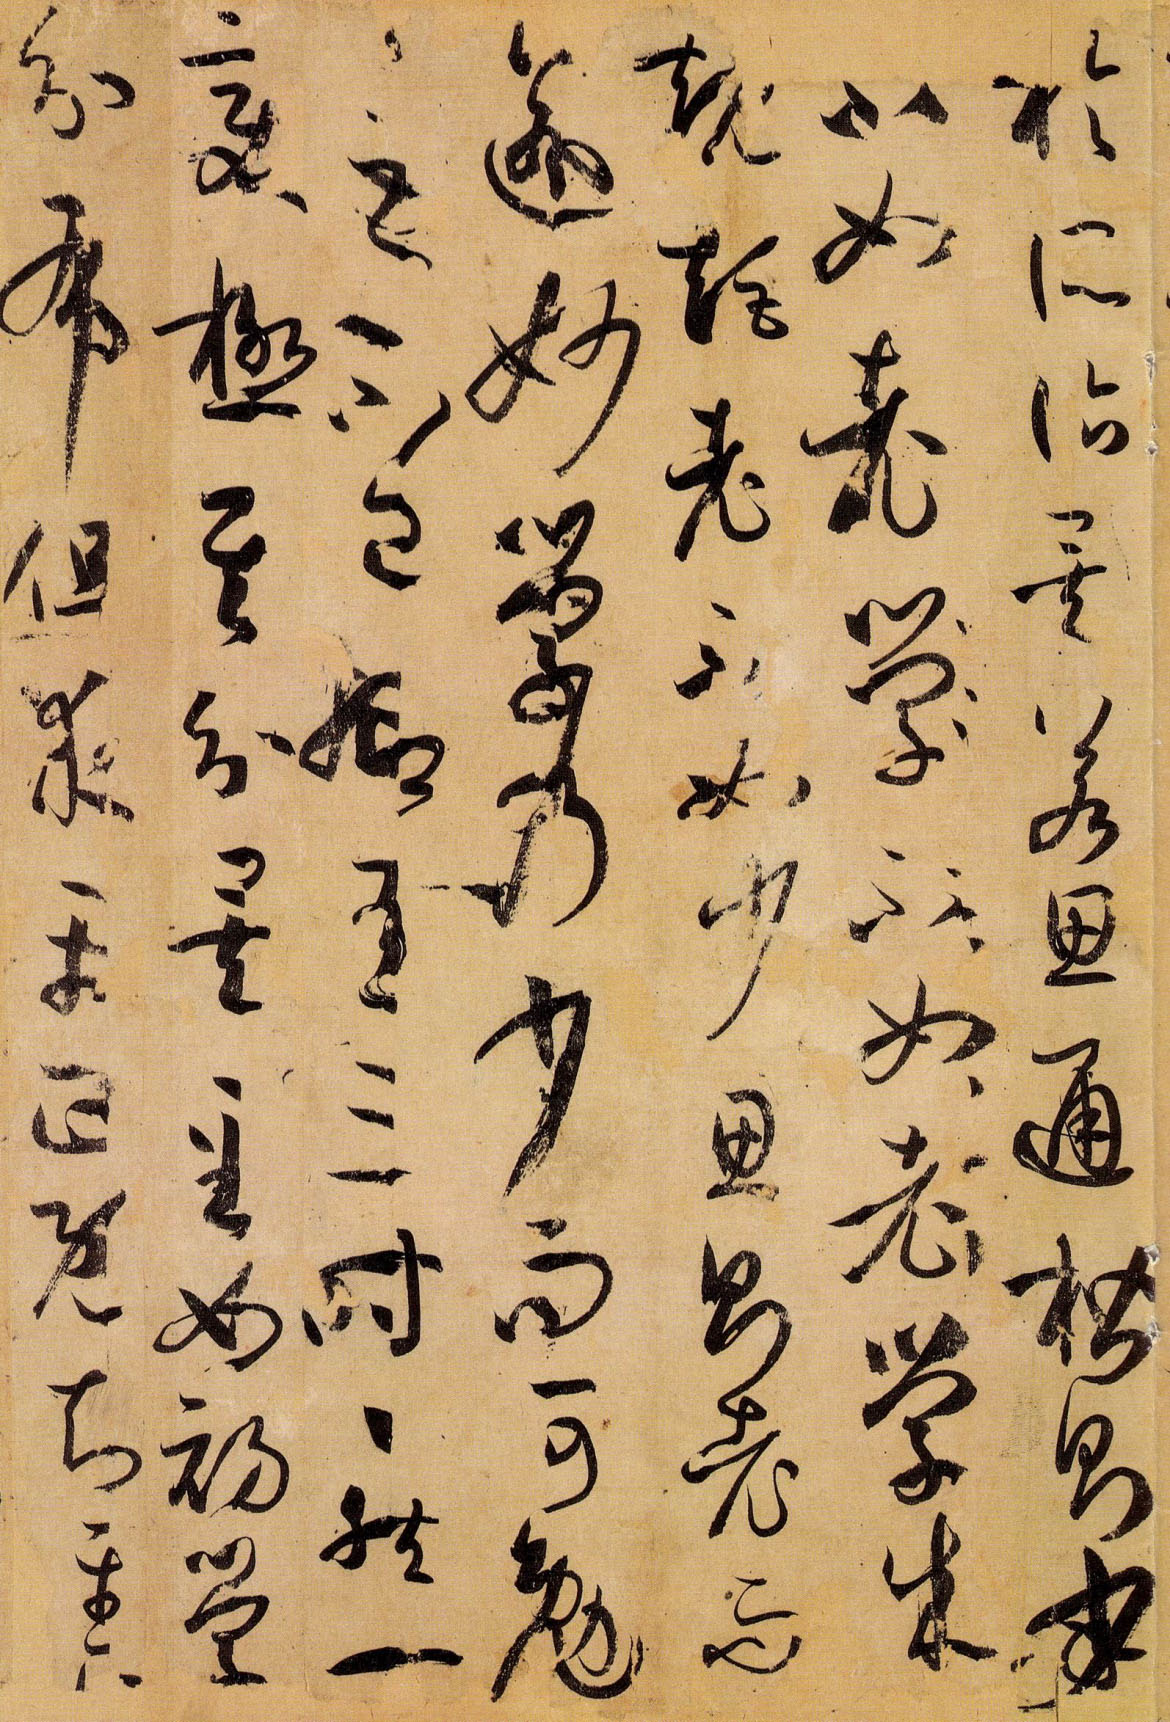 於所臨矣若思通楷則少
不如老學不如老學成
規矩老不如少思則老而
逾妙學乃少而可勉
々之不已抑有三時々然一
變極其分矣至如初學
分布但求平正既知平正